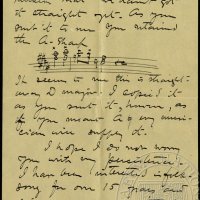 it straight yet. As you
sent it to me you retained
the G-Sharp
It seems to me this is straight-
away D major. I copied it
as you sent it, however, as
if you meant A G any musi-
cian will supply it.
I hope I do not worry
you with my persistence.
I have been interested in folk-
song for over 15 years and